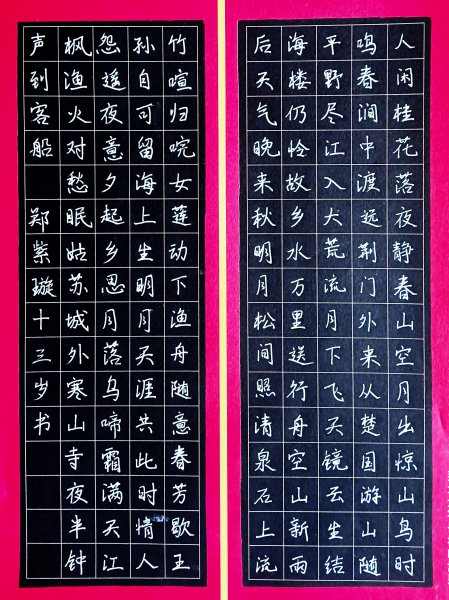 人闲桂花落夜静春山空月出惊山鸟时
鸣春涧中渡远荆门外来从楚国游山随
平野尽江入大荒流月下飞天镜云生结
海楼仍怜故乡水万里送行舟空山新雨
后天气晚来秋明月松间照清泉石上流
竹喧归浣女莲动下渔舟随意春芳歇王
孙自可留海上生明月天涯共此时情人
怨遥夜意夕起乡思月落乌啼霜满天江
枫渔火对愁眠姑苏城外寒山寺夜半钟
声到客船 郑紫璇十三岁书